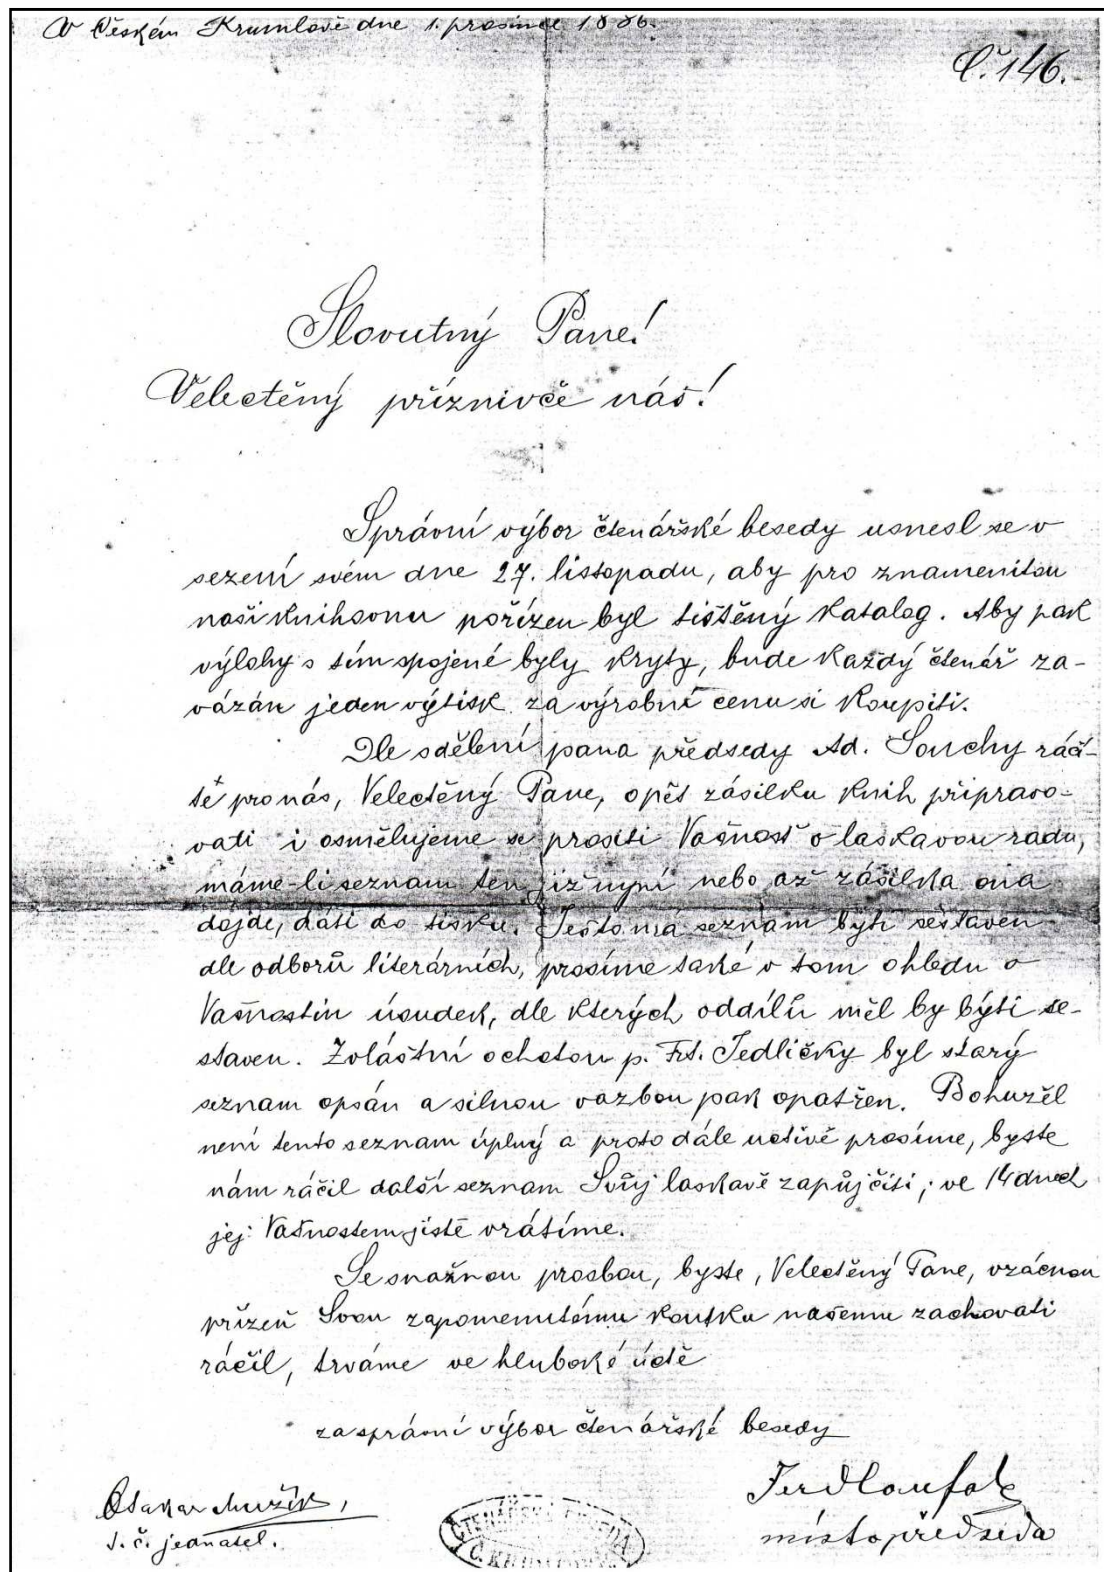 V Českém Krumlově dne 1. prosince 1886.
Č. 146.
Slovutný Pane!
Velectěný příznivče náš!
Správní výbor čtenářské besedy usnesl se v
sezení svém dne 27. listopadu, aby pro znamenitou
naši knihovnu pořízen byl tištěný katalog. Aby pak
výlohy s tím spojené byly kryty, bude každý čtenář za-
vázán jeden výtisk za výrobní cenu si koupiti.
Dle sdělení pana předsedy Ad. Souchy ráčí-
te pro nás, Velectěný Pane, opět zásilku knih připravo-
vati i osmělujeme se prositi Vašnost o laskavou radu,
máme-li seznam ten již nyní nebo až zásilka ona
dojde, dáti do tisku. Ješto má seznam býti sestaven
dle odborů literárních, prosíme také v tom ohledu o
Vašnostin úsudek, dle kterých oddílů měl by býti se-
staven. Zvláštní ochotou p. Frt. Jedličky byl starý
seznam opsán a silnou vazbou pak opatřen. Bohužel
není tento seznam úplný a proto dále uctivě prosíme, byste
nám ráčil další seznam Svůj laskavě zapůjčiti; ve 14 dnech
jej Vašnostem jistě vrátíme.
Se snažnou prosbou, byste, Velectěný Pane, vzácnou
přízeň Svou zapomenutému koutku našemu zachovati
ráčil, trváme ve hluboké úctě
za správní výbor čtenářské besedy
Otakar Mužík,
t. č. jednatel.
ČTENÁŘSKÁ BESEDA
místopředseda